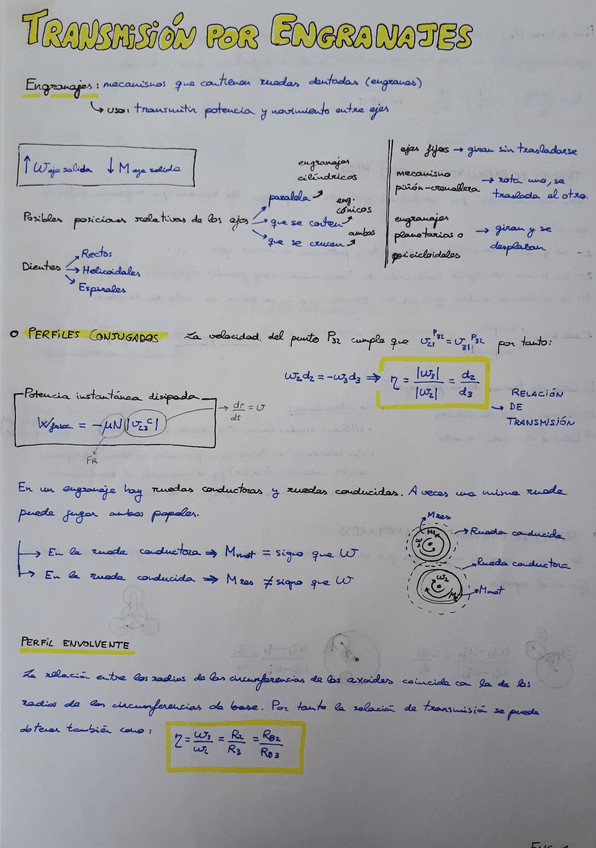 TRANSMISIÓN POR ENGRANAJES
Engranajes: mecanismos que contienen ruedas dentadas (engranes)
↳ uso: transmitir potencia y movimiento entre ejes
↑ W eje salida ↓ M eje salida
Posibles posiciones relativas de los ejes
paralela ↗ engranajes cilíndricos
que se corten ↗ eng. cónicos
que se crucen ↗ ambos
ejes fijos → giran sin trasladarse
mecanismo piñón-cremallera → rota uno, se traslada el otro.
engranajes planetarios o epicicloidales → giran y se desplazan
Dientes
→ Rectos
→ Helicoidales
→ Espirales
PERFILES CONJUGADOS La velocidad del punto P32 cumple que v21^P32 = v31^P32 por tanto:
ω2d2 = -ω3d3 ⇒ η = |ω3| / |ω2| = d2 / d3
RELACIÓN
DE
TRANSMISIÓN
Potencia instantánea disipada
= -μN |v23^C|
→ dr/dt = v
FR
En un engranaje hay ruedas conductoras y ruedas conducidas. A veces una misma rueda
puede jugar ambos papeles.
→ En la rueda conductora ⇒ Mmot = signo que W
→ En la rueda conducida ⇒ Mres ≠ signo que W
Mres
Rueda conducida
Rueda conductora
ω2
Mmot
PERFIL ENVOLVENTE
La relación entre los radios de las circunferencias de los axoides coincide con la de los
radios de las circunferencias de base. Por tanto la relación de transmisión se puede
obtener también como:
η = ω3 / ω2 = R2 / R3 = RB2 / RB3